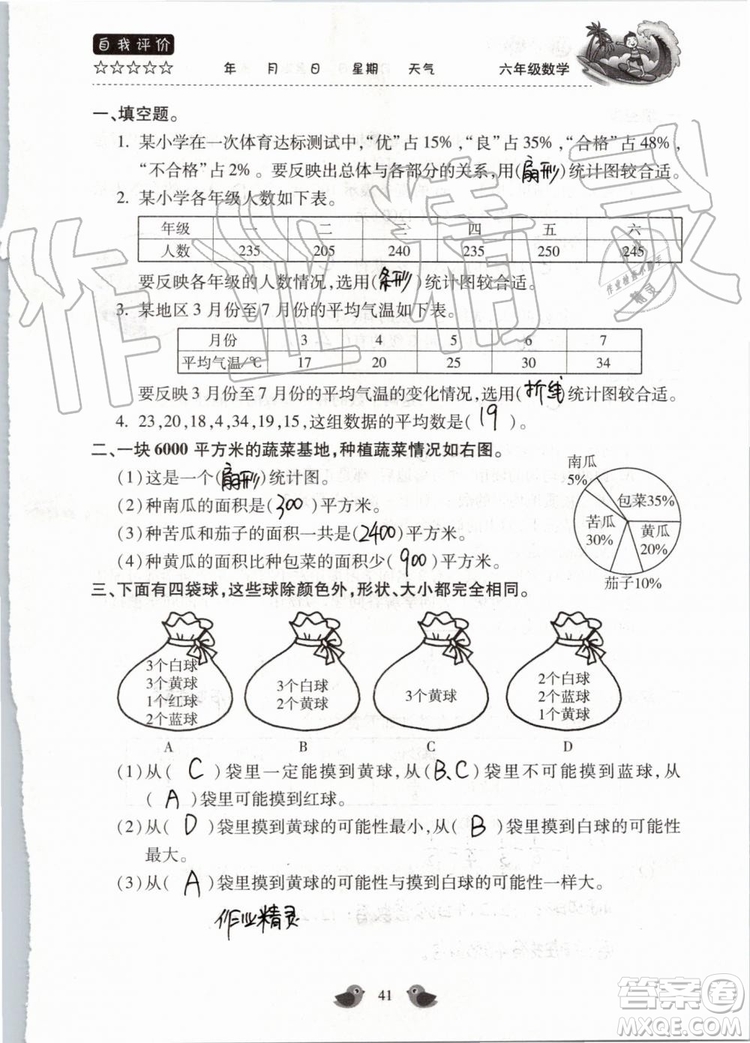 自我评价
☆☆☆☆☆ 年 月 日 星期 天气 六年级数学
一、填空题。
1. 某小学在一次体育达标测试中,“优”占 15%,“良”占 35%,“合格”占 48%,
“不合格”占 2%。要反映出总体与各部分的关系,用(扇形)统计图较合适。
2. 某小学各年级人数如下表。
年级 一 二 三 四 五 六
人数 235 205 240 235 250 245
要反映各年级的人数情况,选用(条形)统计图较合适。
3. 某地区 3 月份至 7 月份的平均气温如下表。
月份 3 4 5 6 7
平均气温/℃ 17 20 25 30 34
要反映 3 月份至 7 月份的平均气温的变化情况,选用(折线)统计图较合适。
4. 23,20,18,4,34,19,15,这组数据的平均数是( 19 )。
二、一块 6000 平方米的蔬菜基地,种植蔬菜情况如右图。
(1)这是一个(扇形)统计图。
(2)种南瓜的面积是(300)平方米。
(3)种苦瓜和茄子的面积一共是(2400)平方米。
(4)种黄瓜的面积比种包菜的面积少(900)平方米。
南瓜
5%
包菜35%
苦瓜
30%
黄瓜
20%
茄子10%
三、下面有四袋球,这些球除颜色外,形状、大小都完全相同。
3个白球
3个黄球
1个红球
2个蓝球
A
3个白球
2个黄球
B
3个黄球
C
2个白球
2个蓝球
1个黄球
D
(1)从( C )袋里一定能摸到黄球,从(B、C)袋里不可能摸到蓝球,从
( A )袋里可能摸到红球。
(2)从( D )袋里摸到黄球的可能性最小,从( B )袋里摸到白球的可能性
最大。
(3)从( A )袋里摸到黄球的可能性与摸到白球的可能性一样大。
作业精灵
41
作业精灵
答案圈
MXQE.COM